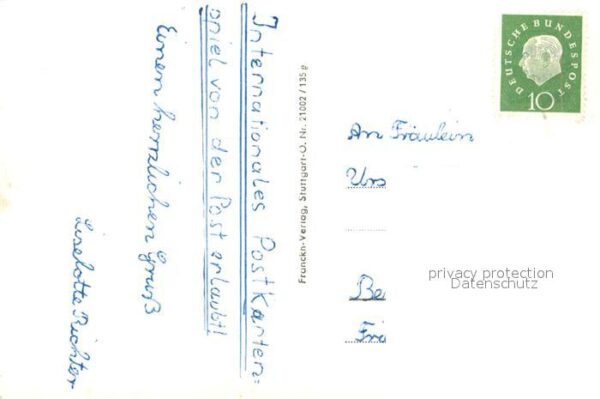 Internationales Postkarten=
spiel von der Post erlaubt!
Einen herzlichen Gruß
Liselotte Richter
Franckh-Verlag, Stuttgart-O. Nr. 21002/135 g
DEUTSCHE BUNDESPOST
10
An Fräulein
Urs
Be
Fri
privacy protection
Datenschutz